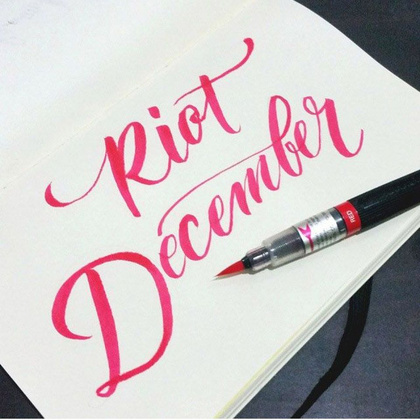 Riot
December
RED